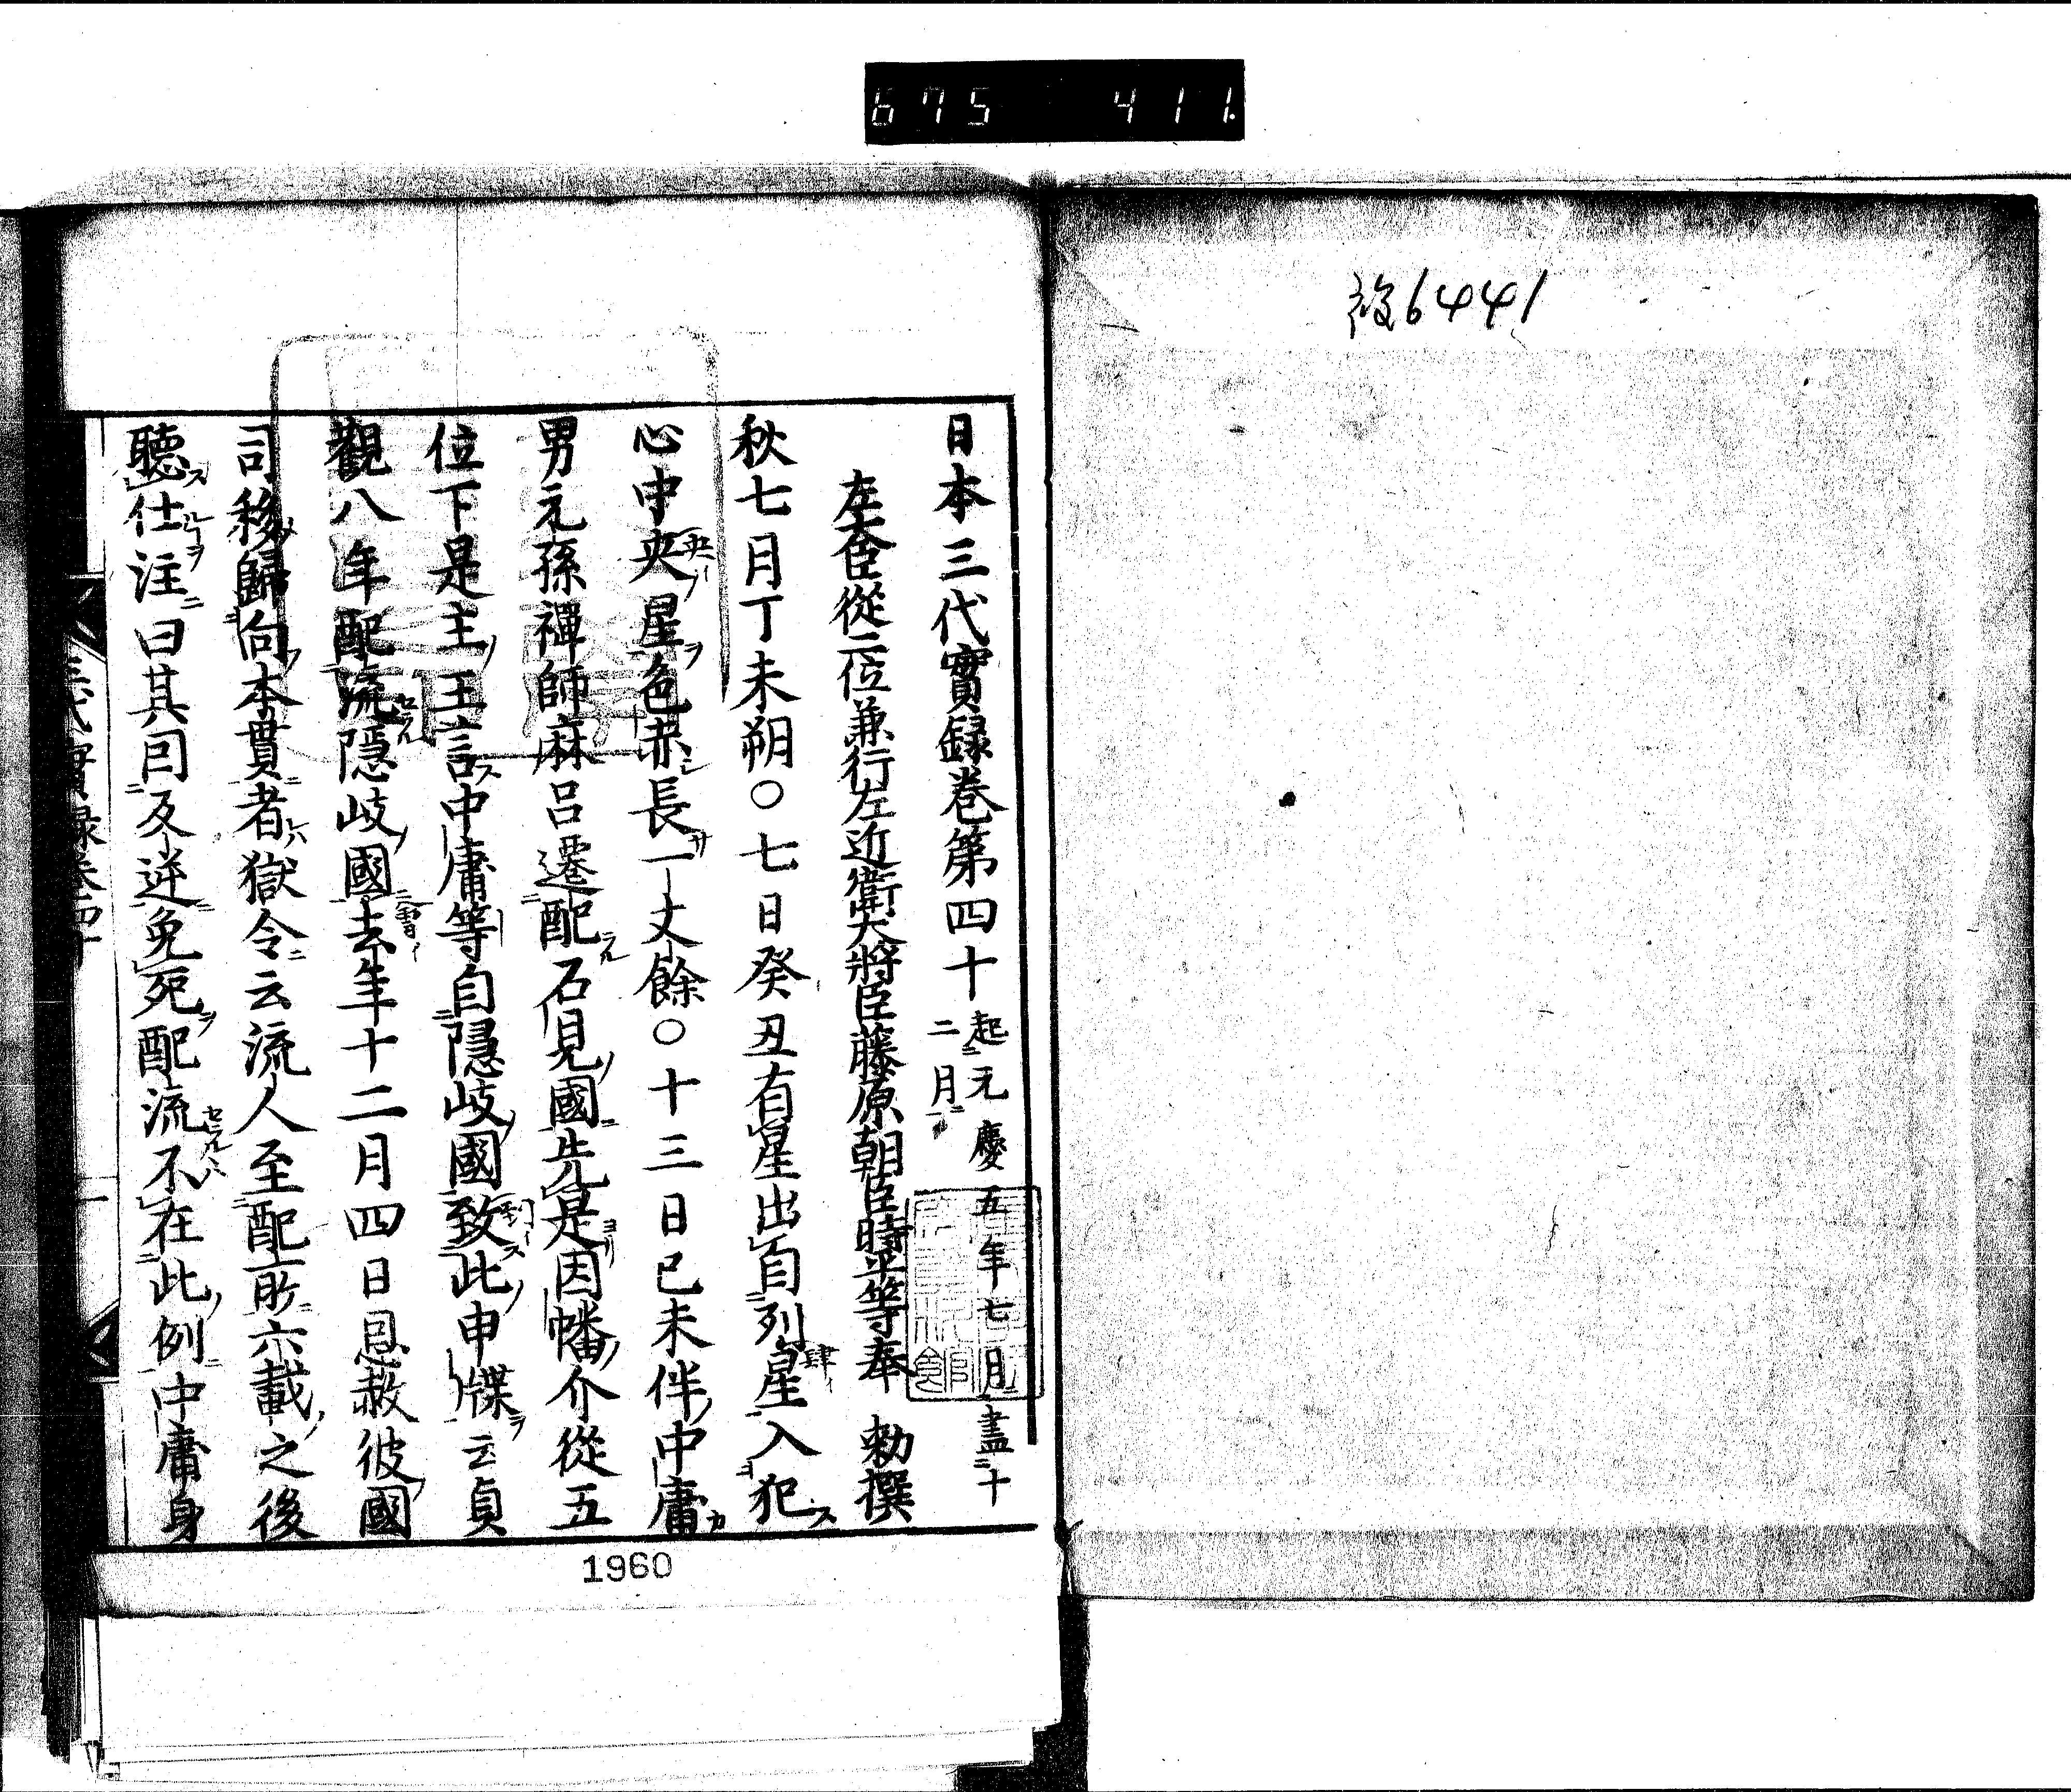 675 411.
6441
日本三代實録卷第四十 起元慶五年七月盡十二月
左大臣從二位兼行左近衛大將臣藤原朝臣時平等奉 勅撰
秋七月丁未朔○七日癸丑有星出自列星入犯
心中央星色赤長一丈餘○十三日己未伴中庸
男元孫禪師麻呂遷配石見國先是因幡介從五
位下是主王言中庸等自隱岐國致此申牒云貞
觀八年配流隱岐國去年十二月四日恩赦彼國
司移歸向本貫者獄令云流人至配所六載之後
聽仕注曰其因反逆免死配流不在此例中庸身
三代實録卷四十
一
1960